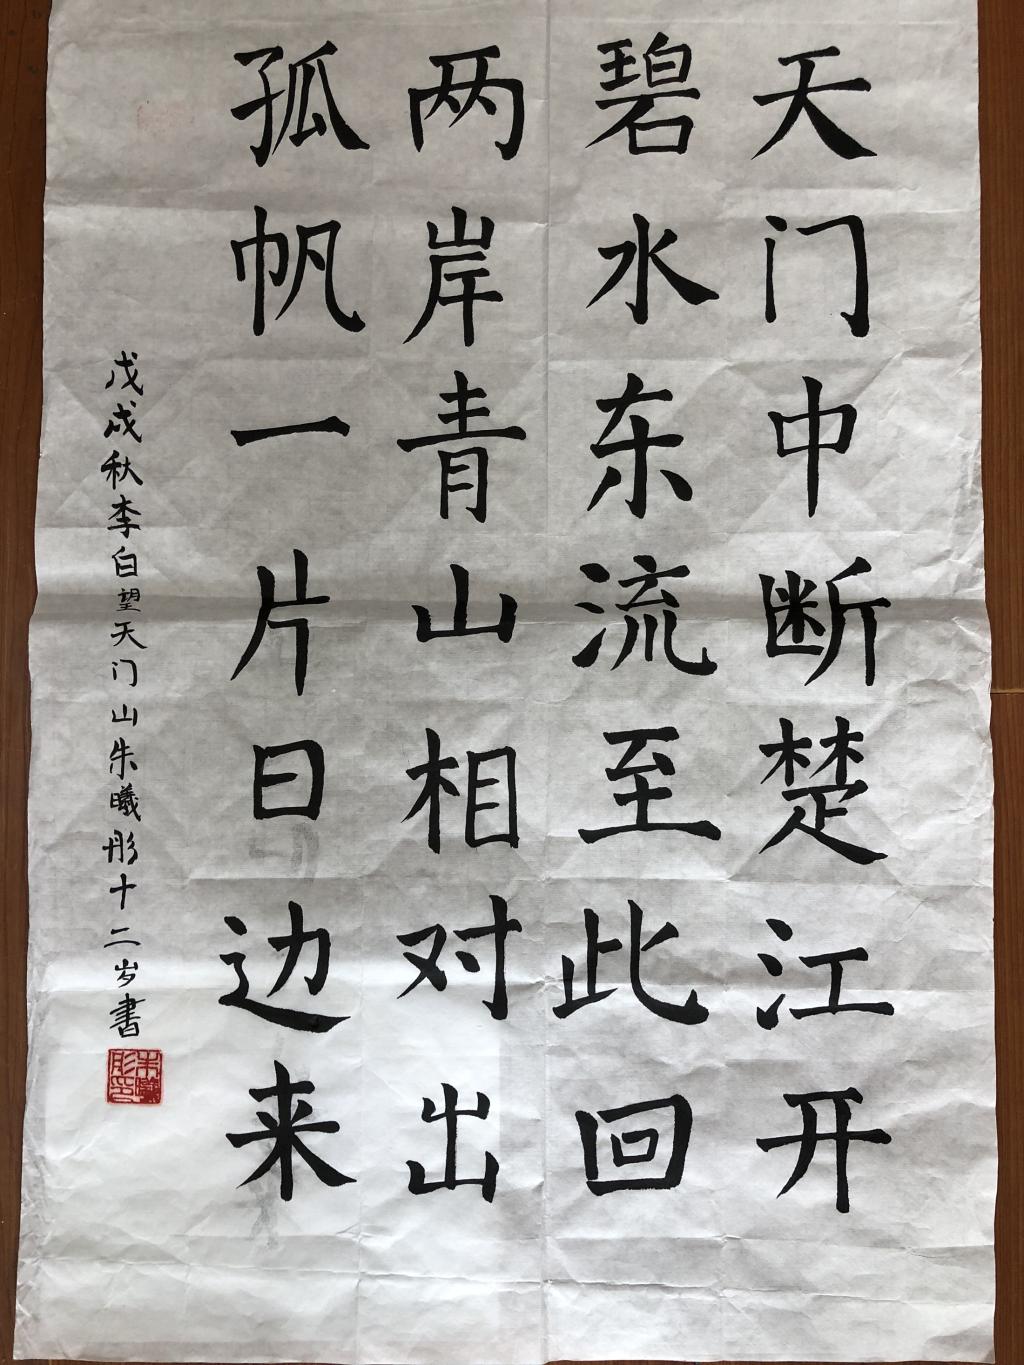 天门中断楚江开
碧水东流至此回
两岸青山相对出
孤帆一片日边来
戊戌秋李白望天门山朱曦彤十二岁書
朱曦彤印